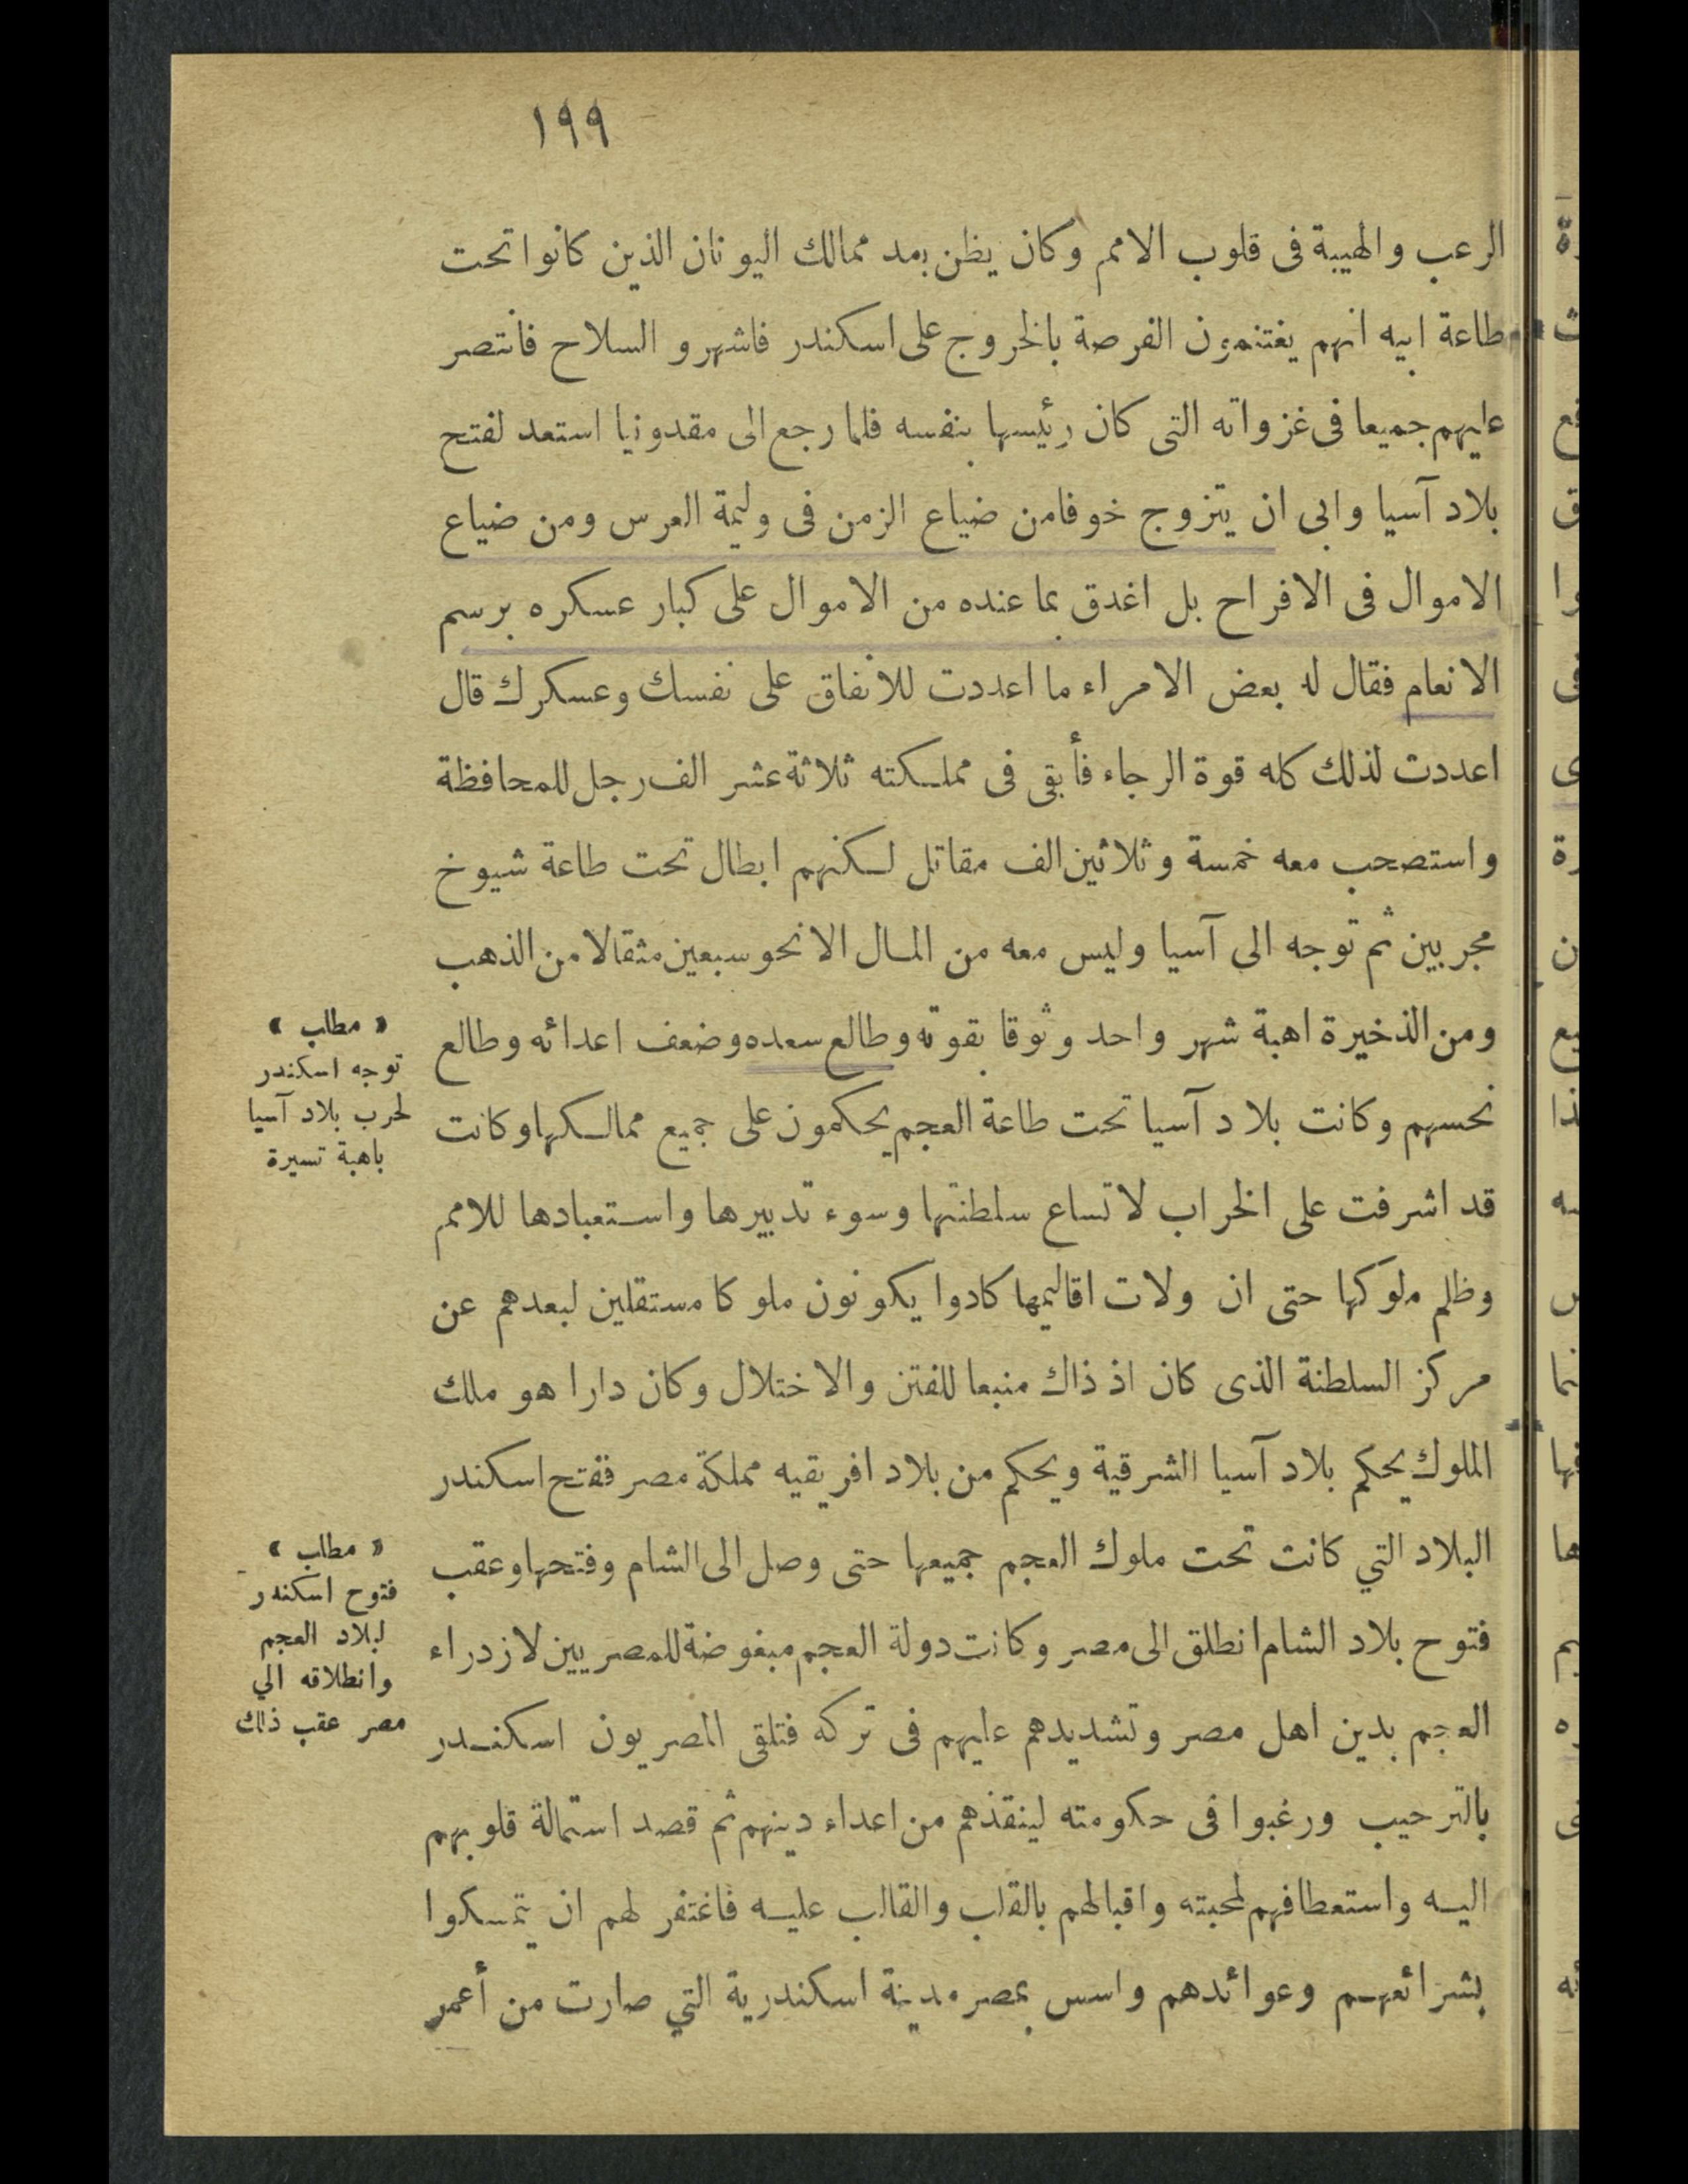 ١٩٩
الرعب والهيبة فى قلوب الامم وكان يظن بمد ممالك اليونان الذين كانوا تحت
طاعة ابيه انهم يغتنمون الفرصة بالخروج على اسكندر فاشهرو السلاح فانتصر
عليهم جميعا فى غزواته التى كان رئيسها بنفسه فلما رجع الى مقدونيا استعد لفتح
بلاد آسيا وابى ان يتزوج خوفا من ضياع الزمن فى وليمة العرس ومن ضياع
الاموال فى الافراح بل اغدق بما عنده من الاموال على كبار عسكره برسم
الانعام فقال له بعض الامراء ما اعددت للانفاق على نفسك وعسكرك قال
اعددت لذلك كله قوة الرجاء فأبقى فى مملكته ثلاثة عشر الف رجل للمحافظة
واستصحب معه خمسة وثلاثين الف مقاتل لكنهم ابطال تحت طاعة شيوخ
مجربين ثم توجه الى آسيا وليس معه من المال الا نحو سبعين مثقالا من الذهب
ومن الذخيرة اهبة شهر واحد وثوقا بقوته وطالع سعده وضعف اعدائه وطالع
نحسهم وكانت بلاد آسيا تحت طاعة العجم يحكمون على جميع ممالكها وكانت
قد اشرفت على الخراب لاتساع سلطنتها وسوء تدبيرها واستعبادها للامم
وظلم ملوكها حتى ان ولات اقاليمها كادوا يكونون ملوكا مستقلين لبعدهم عن
مركز السلطنة الذى كان اذ ذاك منبعا للفتن والاختلال وكان دارا هو ملك
الملوك يحكم بلاد آسيا الشرقية ويحكم من بلاد افريقيه مملكة مصر ففتح اسكندر
البلاد التي كانت تحت ملوك العجم جميعها حتى وصل الى الشام وفتحها وعقب
فتوح بلاد الشام انطلق الى مصر وكانت دولة العجم مبغوضة للمصريين لازدراء
العجم بدين اهل مصر وتشديدهم عليهم فى تركه فتلقى المصريون اسكندر
بالترحيب ورغبوا فى حكومته لينقذهم من اعداء دينهم ثم قصد استمالة قلوبهم
اليه واستعطافهم لمحبته واقبالهم بالقلب والقالب عليه فاغتفر لهم ان يتمسكوا
بشرائعهم وعوائدهم واسس بمصر مدينة اسكندرية التي صارت من أعمر
« مطلب »
توجه اسكندر
لحرب بلاد آسيا
باهبة تسيرة
« مطلب »
فتوح اسكندر
لبلاد العجم
وانطلاقه الي
مصر عقب ذلك